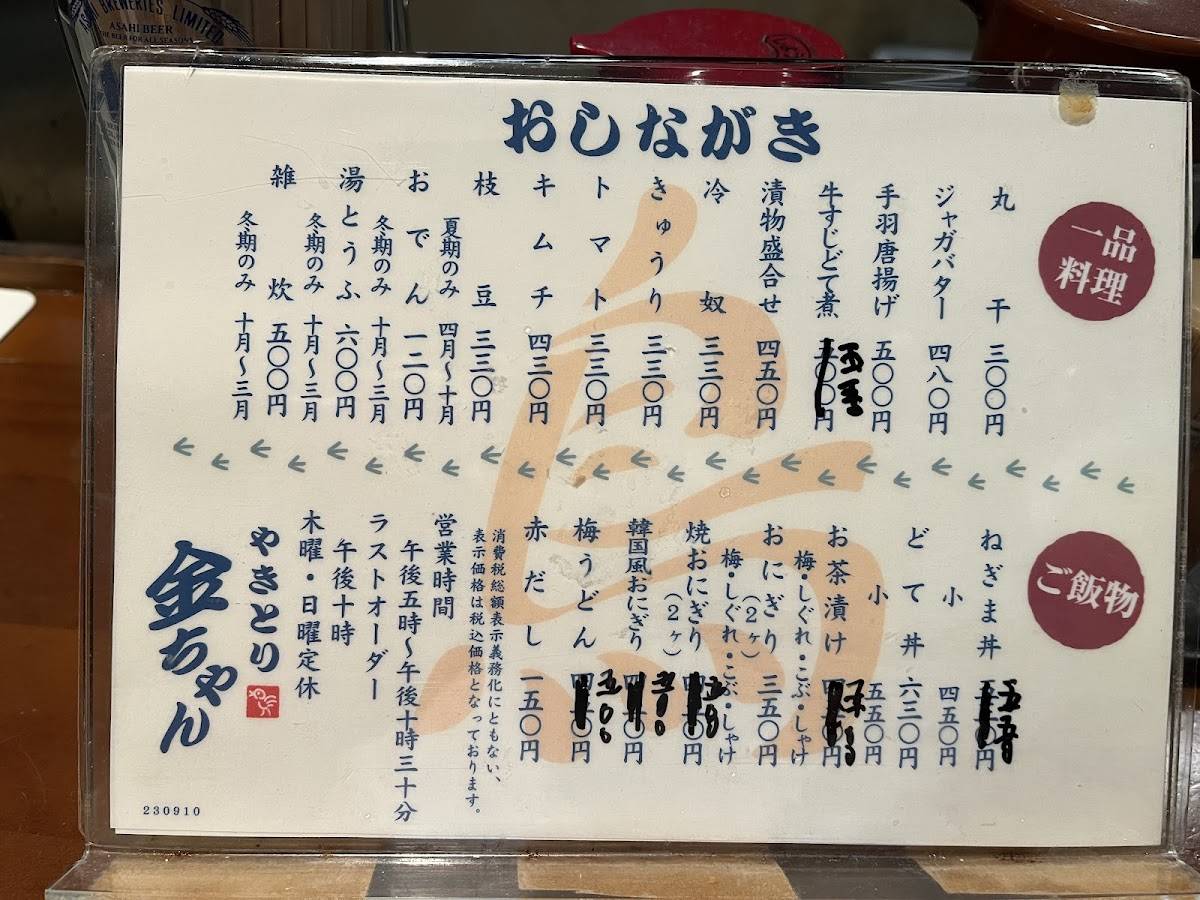 BREWERIES LIMITED
ASAHI BEER
THE BEER FOR ALL SEASONS
おしながき
一品
料理
丸干 三〇〇円
ジャガバター 四八〇円
手羽唐揚げ 五〇〇円
牛すじどて煮 〇〇円
漬物盛合せ 四五〇円
冷奴 三三〇円
きゅうり 三三〇円
トマト 三三〇円
キムチ 四三〇円
枝豆 三三〇円
夏期のみ 四月～十月
おでん 一二〇円
冬期のみ 十月～三月
湯とうふ 六〇〇円
冬期のみ 十月～三月
雑炊 五〇〇円
冬期のみ 十月～三月
ご飯物
ねぎま丼 円
小 四五〇円
どて丼 六三〇円
小 五五〇円
お茶漬け 円
梅・しぐれ・こぶ・しゃけ
おにぎり(2ヶ) 三五〇円
梅・しぐれ・こぶ・しゃけ
焼おにぎり(2ヶ) 円
韓国風おにぎり 円
梅うどん 五〇〇円
赤だし 一五〇円
消費税総額表示義務化にともない、
表示価格は税込価格となっております。
営業時間
午後五時～午後十時三十分
ラストオーダー
午後十時
木曜・日曜定休
やきとり
金ちゃん
230910
鳥